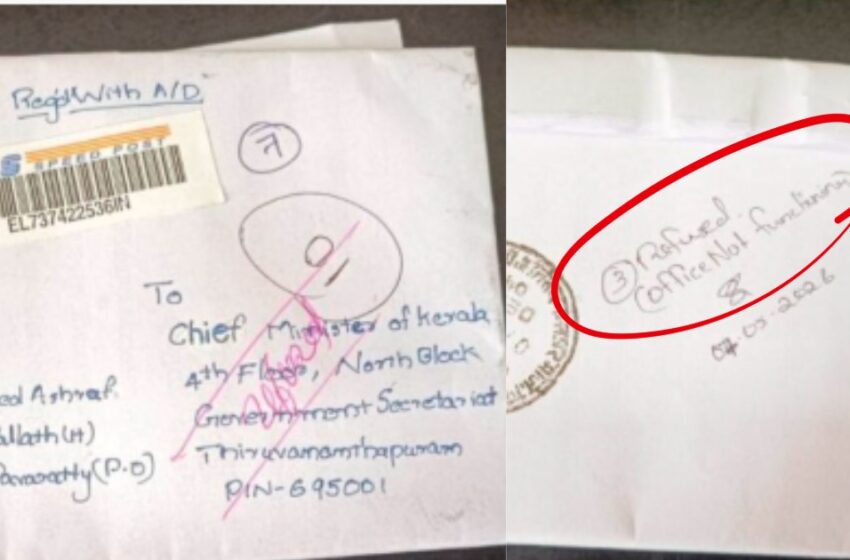 Reg'd With A/D
SPEED POST
EL737422536IN
To
Chief Minister of Kerala
4th Floor, North Block
Government Secretariat
Thiruvananthapuram
PIN-695001
Ashraf
(H)
(P.O)
③ Refused
(Office Not functioning
07-05-2026